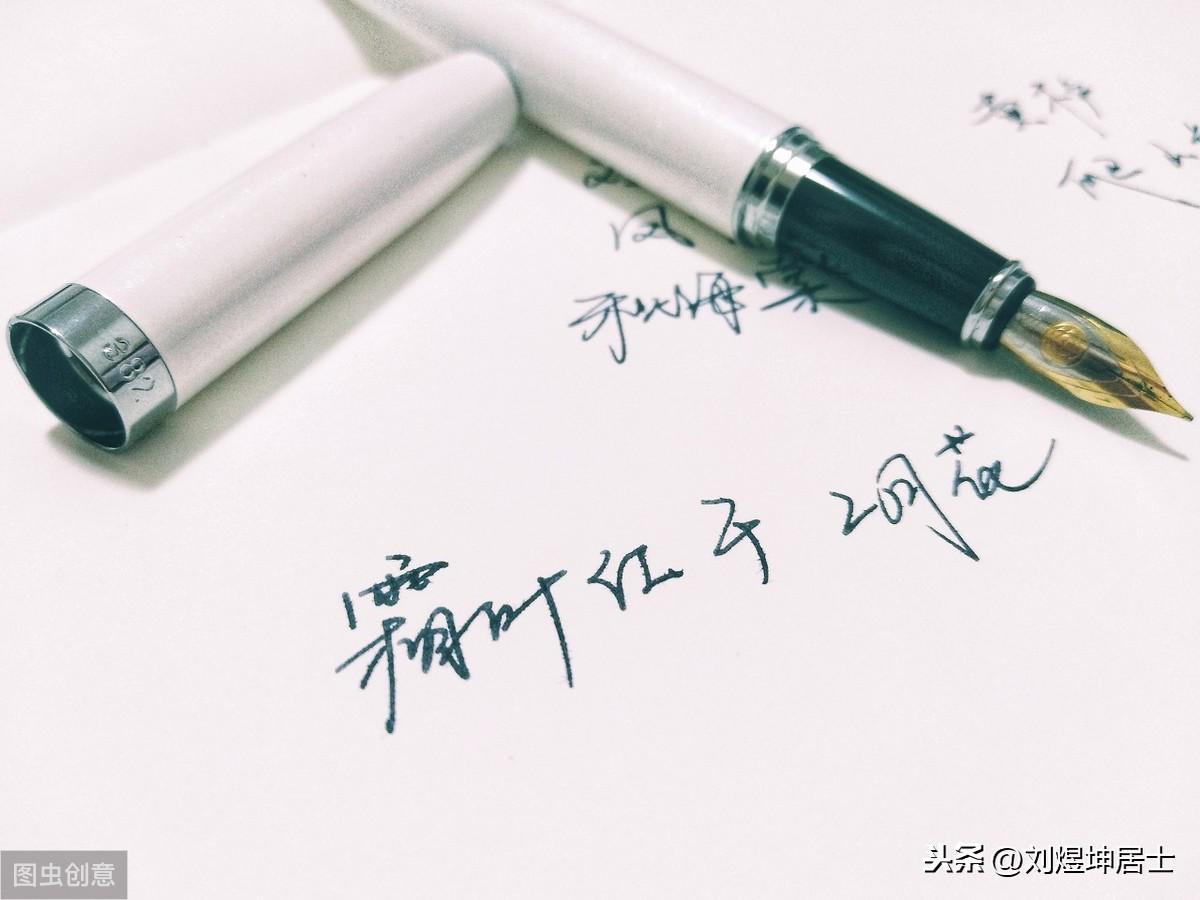 黄花
凤
秋海棠
霜叶红于二月花
图虫创意
头条 @刘煜坤居士